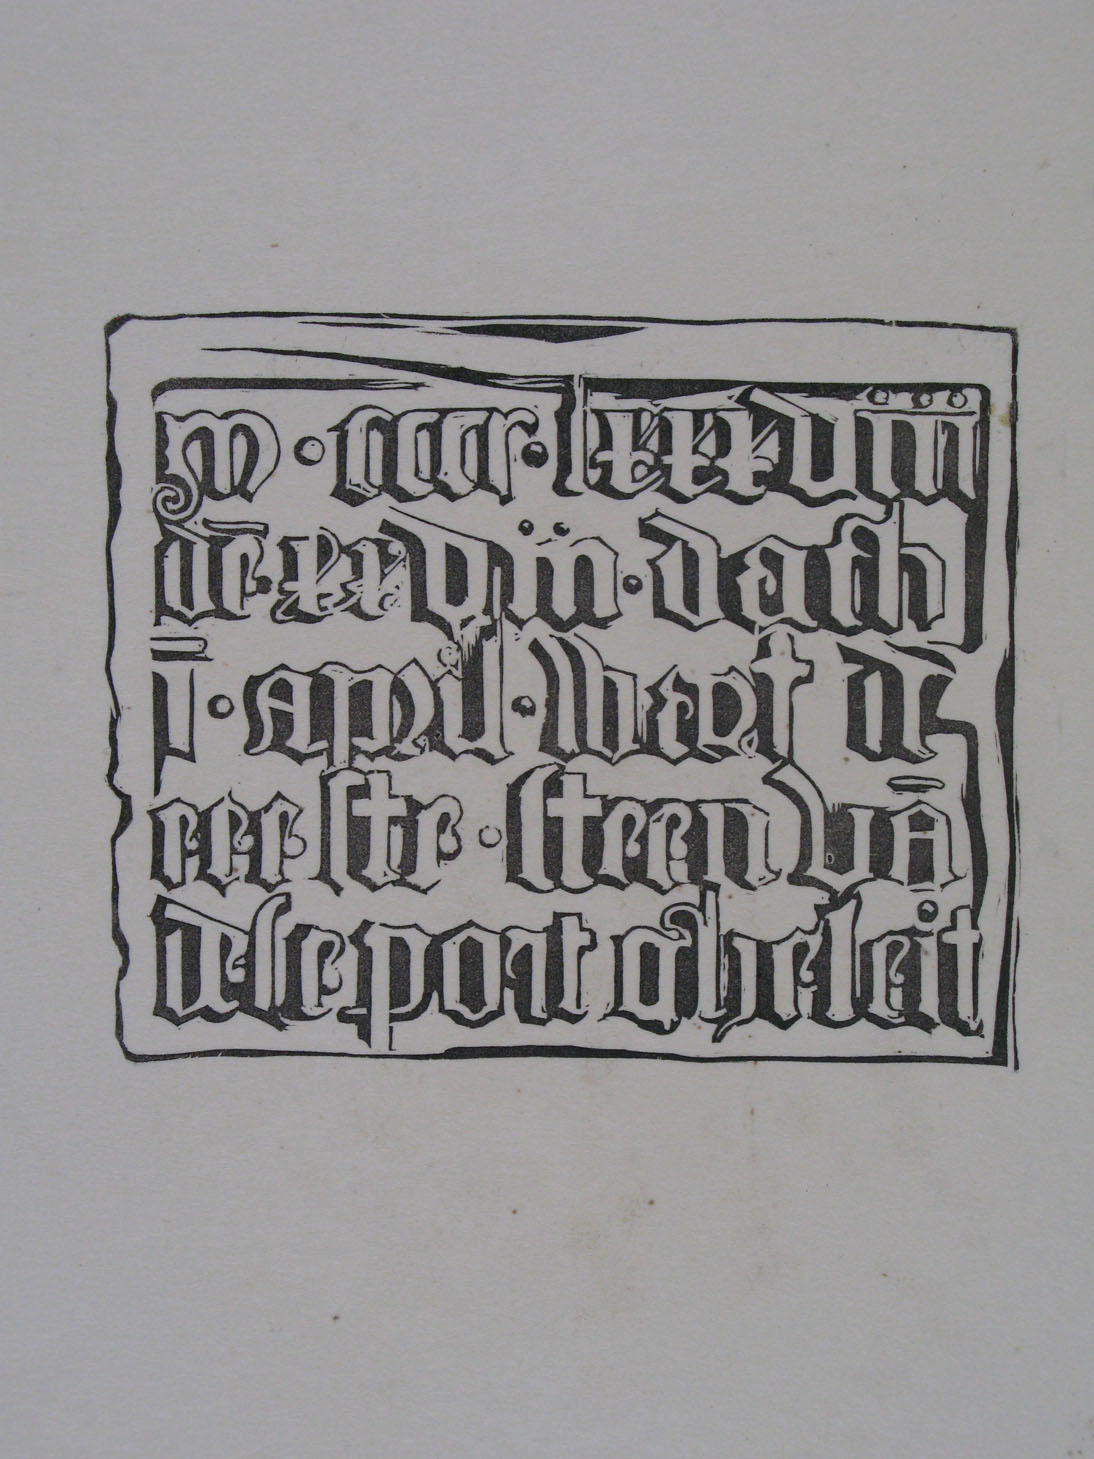 m · cccc · lxxxviii
dē · xxviii · dach
ī · april · wart de
eerste · steen vā
dese poort gheleit